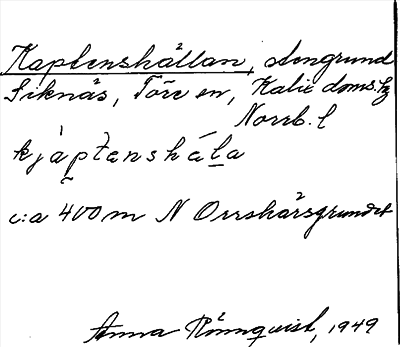 Kaptenshällan, stengrund
Siknäs, Töre sn, Kalix doms.
Norrb. l
kjàptensháļa
c:a 400 m N Orrskärsgrundet
Anna Rönnquist, 1949